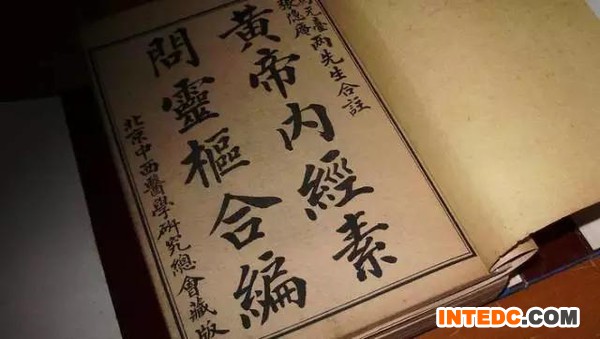 元臺
張隱庵
兩先生合註
黃帝內經素
問靈樞合編
北京中西醫學研究總會藏版
INTEDC.COM